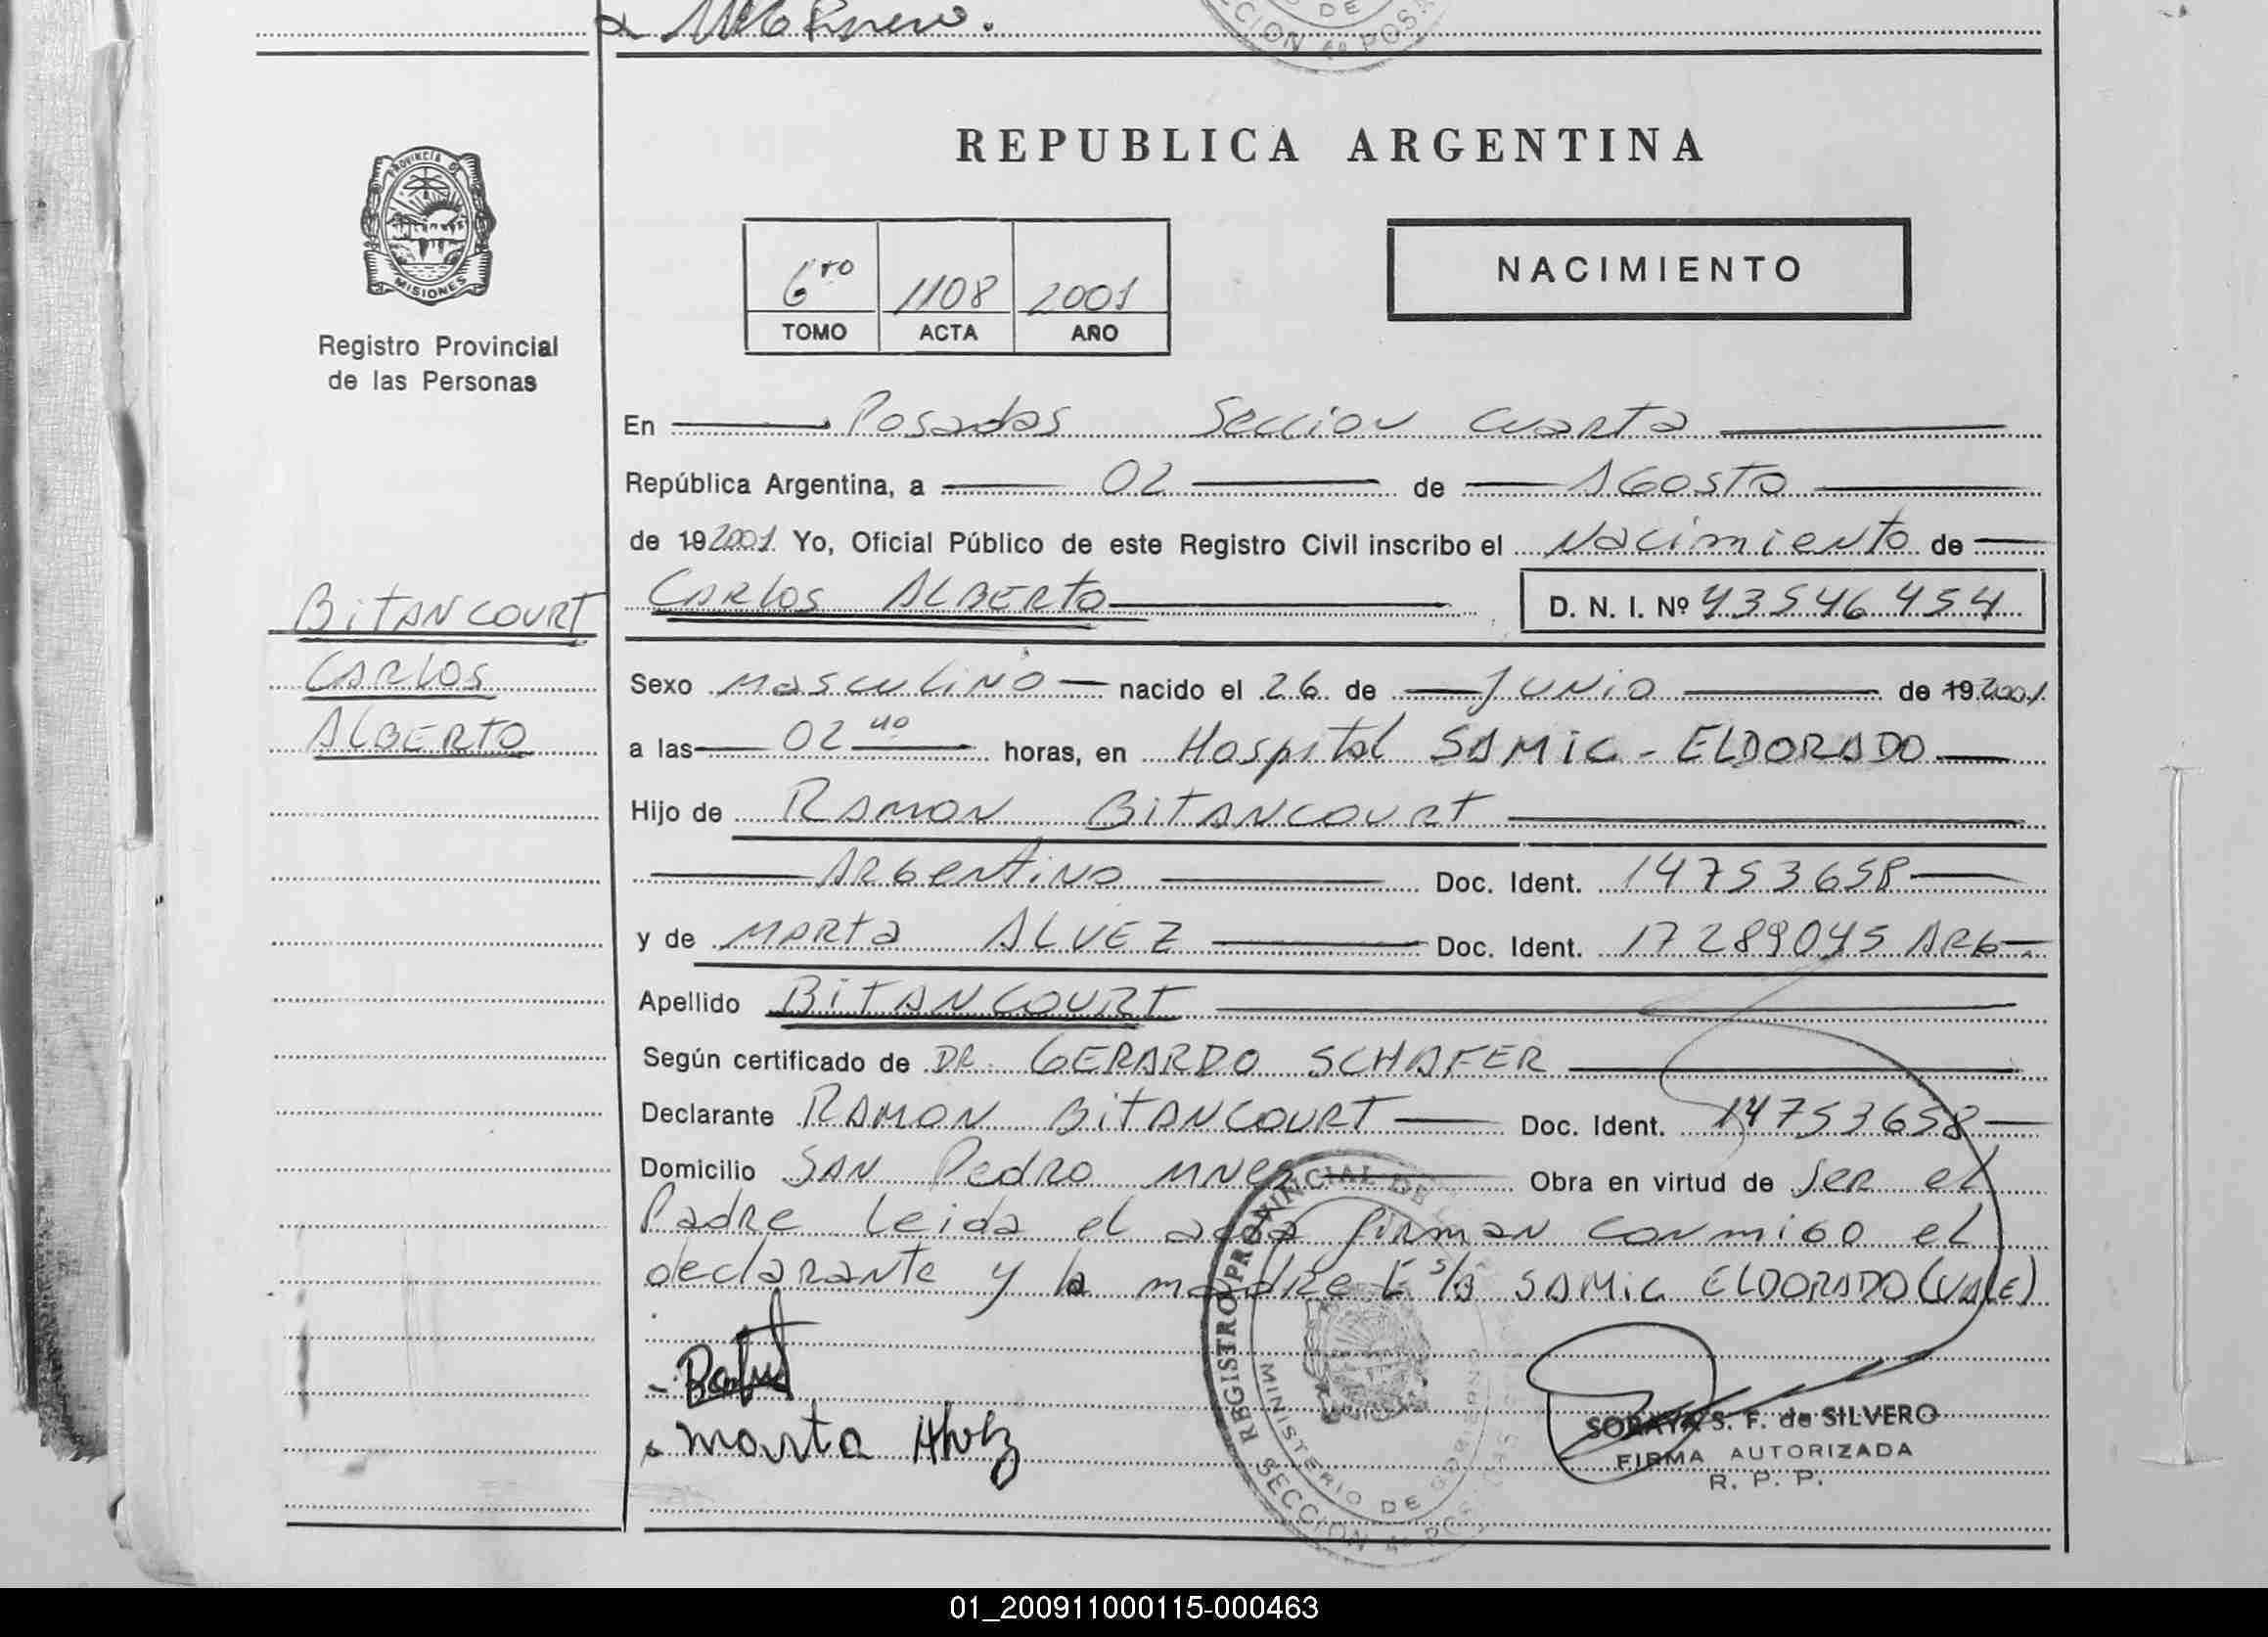 DE
SECCION 4ª POSA
PROVINCIA DE
MISIONES
Registro Provincial
de las Personas
REPUBLICA ARGENTINA
6to 1108 2001
TOMO ACTA AÑO
NACIMIENTO
En Posadas Seccion Cuarta
República Argentina, a 02 de Agosto
de 192001 Yo, Oficial Público de este Registro Civil inscribo el Nacimiento de
BITANCOURT
CARLOS
ALBERTO
CARLOS ALBERTO D. N. I. Nº 43546454
Sexo Masculino nacido el 26 de Junio de 192001
a las 02 40 horas, en Hospital SAMIC - ELDORADO
Hijo de RAMON BITANCOURT
Argentino Doc. Ident. 14753658
y de MARTA ALVEZ Doc. Ident. 17289045 ARG.
Apellido BITANCOURT
Según certificado de DR. GERARDO SCHAFER
Declarante RAMON BITANCOURT Doc. Ident. 14753658
Domicilio SAN Pedro MNES Obra en virtud de Ser el
Padre leida el acta firman conmigo el
declarante y la madre E s/b SAMIC ELDORADO (VALE)
Marta Alvez
REGISTRO PROVINCIAL DE
MINISTERIO DE GOBIERNO
SECCION 4ª POSADAS
SORAYA S. F. de SILVERO
FIRMA AUTORIZADA
R. P. P.
01_200911000115-000463